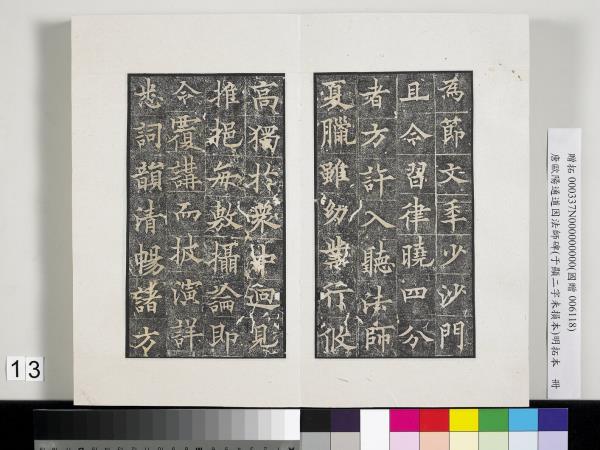 為節文年少沙門
且令習律曉四分
者方許入聽法師
夏臘雖幼業行攸
高獨於眾中迥見
推挹每敷攝論即
令覆講而披演詳
悉詞韻清暢諸方
贈拓 000337N000000000(國贈 006118)
唐歐陽通道因法師碑(于顯二字未損本)明拓本 冊
13